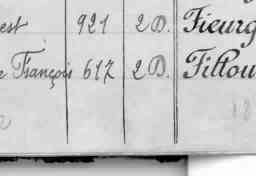 est 921 2D. Fieurg
e François 617 2D. Fillou